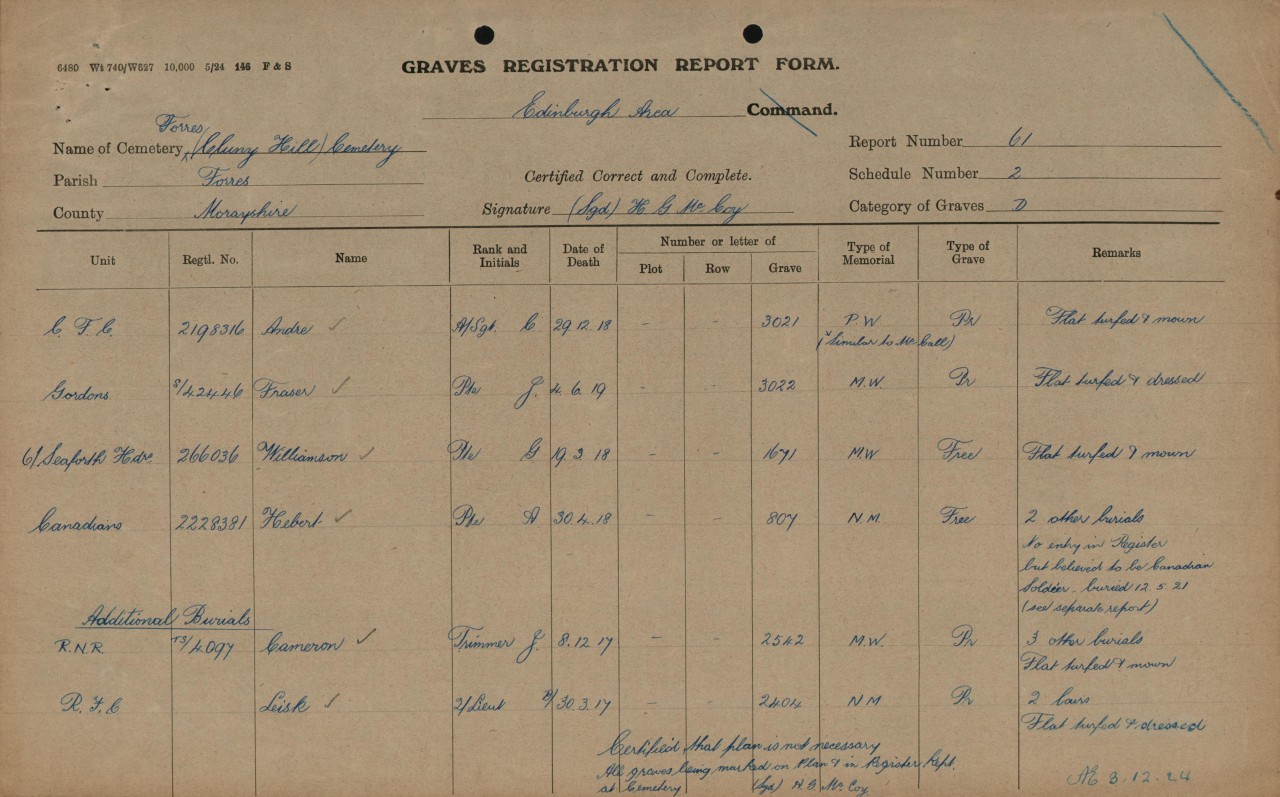 6480 Wt 740/W627 10,000 5/24 146 F & S
GRAVES REGISTRATION REPORT FORM.
Edinburgh Area Command.
Forres
Name of Cemetery (Cluny Hill) Cemetery
Report Number 61
Parish Forres
Certified Correct and Complete.
Schedule Number 2
County Morayshire
Signature (Sgd) H G McCoy
Category of Graves D
Unit Regtl. No. Name Rank and Initials Date of Death Number or letter of Plot Row Grave Type of Memorial Type of Grave Remarks
C. F. C. 2198316 Andre ✓ A/Sgt. C 29.12.18 - - 3021 P.W Pr Flat turfed & mown
(Similar to McCall)
Gordons S/42446 Fraser ✓ Pte J. 4.6.19 - - 3022 M.W Pr Flat turfed & dressed
6/Seaforth Hdrs 266036 Williamson ✓ Pte G 19.3.18 - - 1671 M.W Free Flat turfed & mown
Canadians 2228381 Hebert ✓ Pte A 30.4.18 - - 807 N M Free 2 other burials
No entry in Register
but believed to be Canadian
Soldier. buried 12.5.21
(see separate report)
Additional Burials
R.N.R. TS/4097 Cameron ✓ Trimmer J. 8.12.17 - - 2542 M.W. Pr 3 other burials
Flat turfed & mown
R.F.C Leisk ✓ 2/Lieut 30.3.17 - - 2404 N M Pr 2 lairs
Flat turfed & dressed
Certified that plan is not necessary
All graves being marked on Plan & in Register kept.
at Cemetery (Sgd) H. G. McCoy
3.12.24